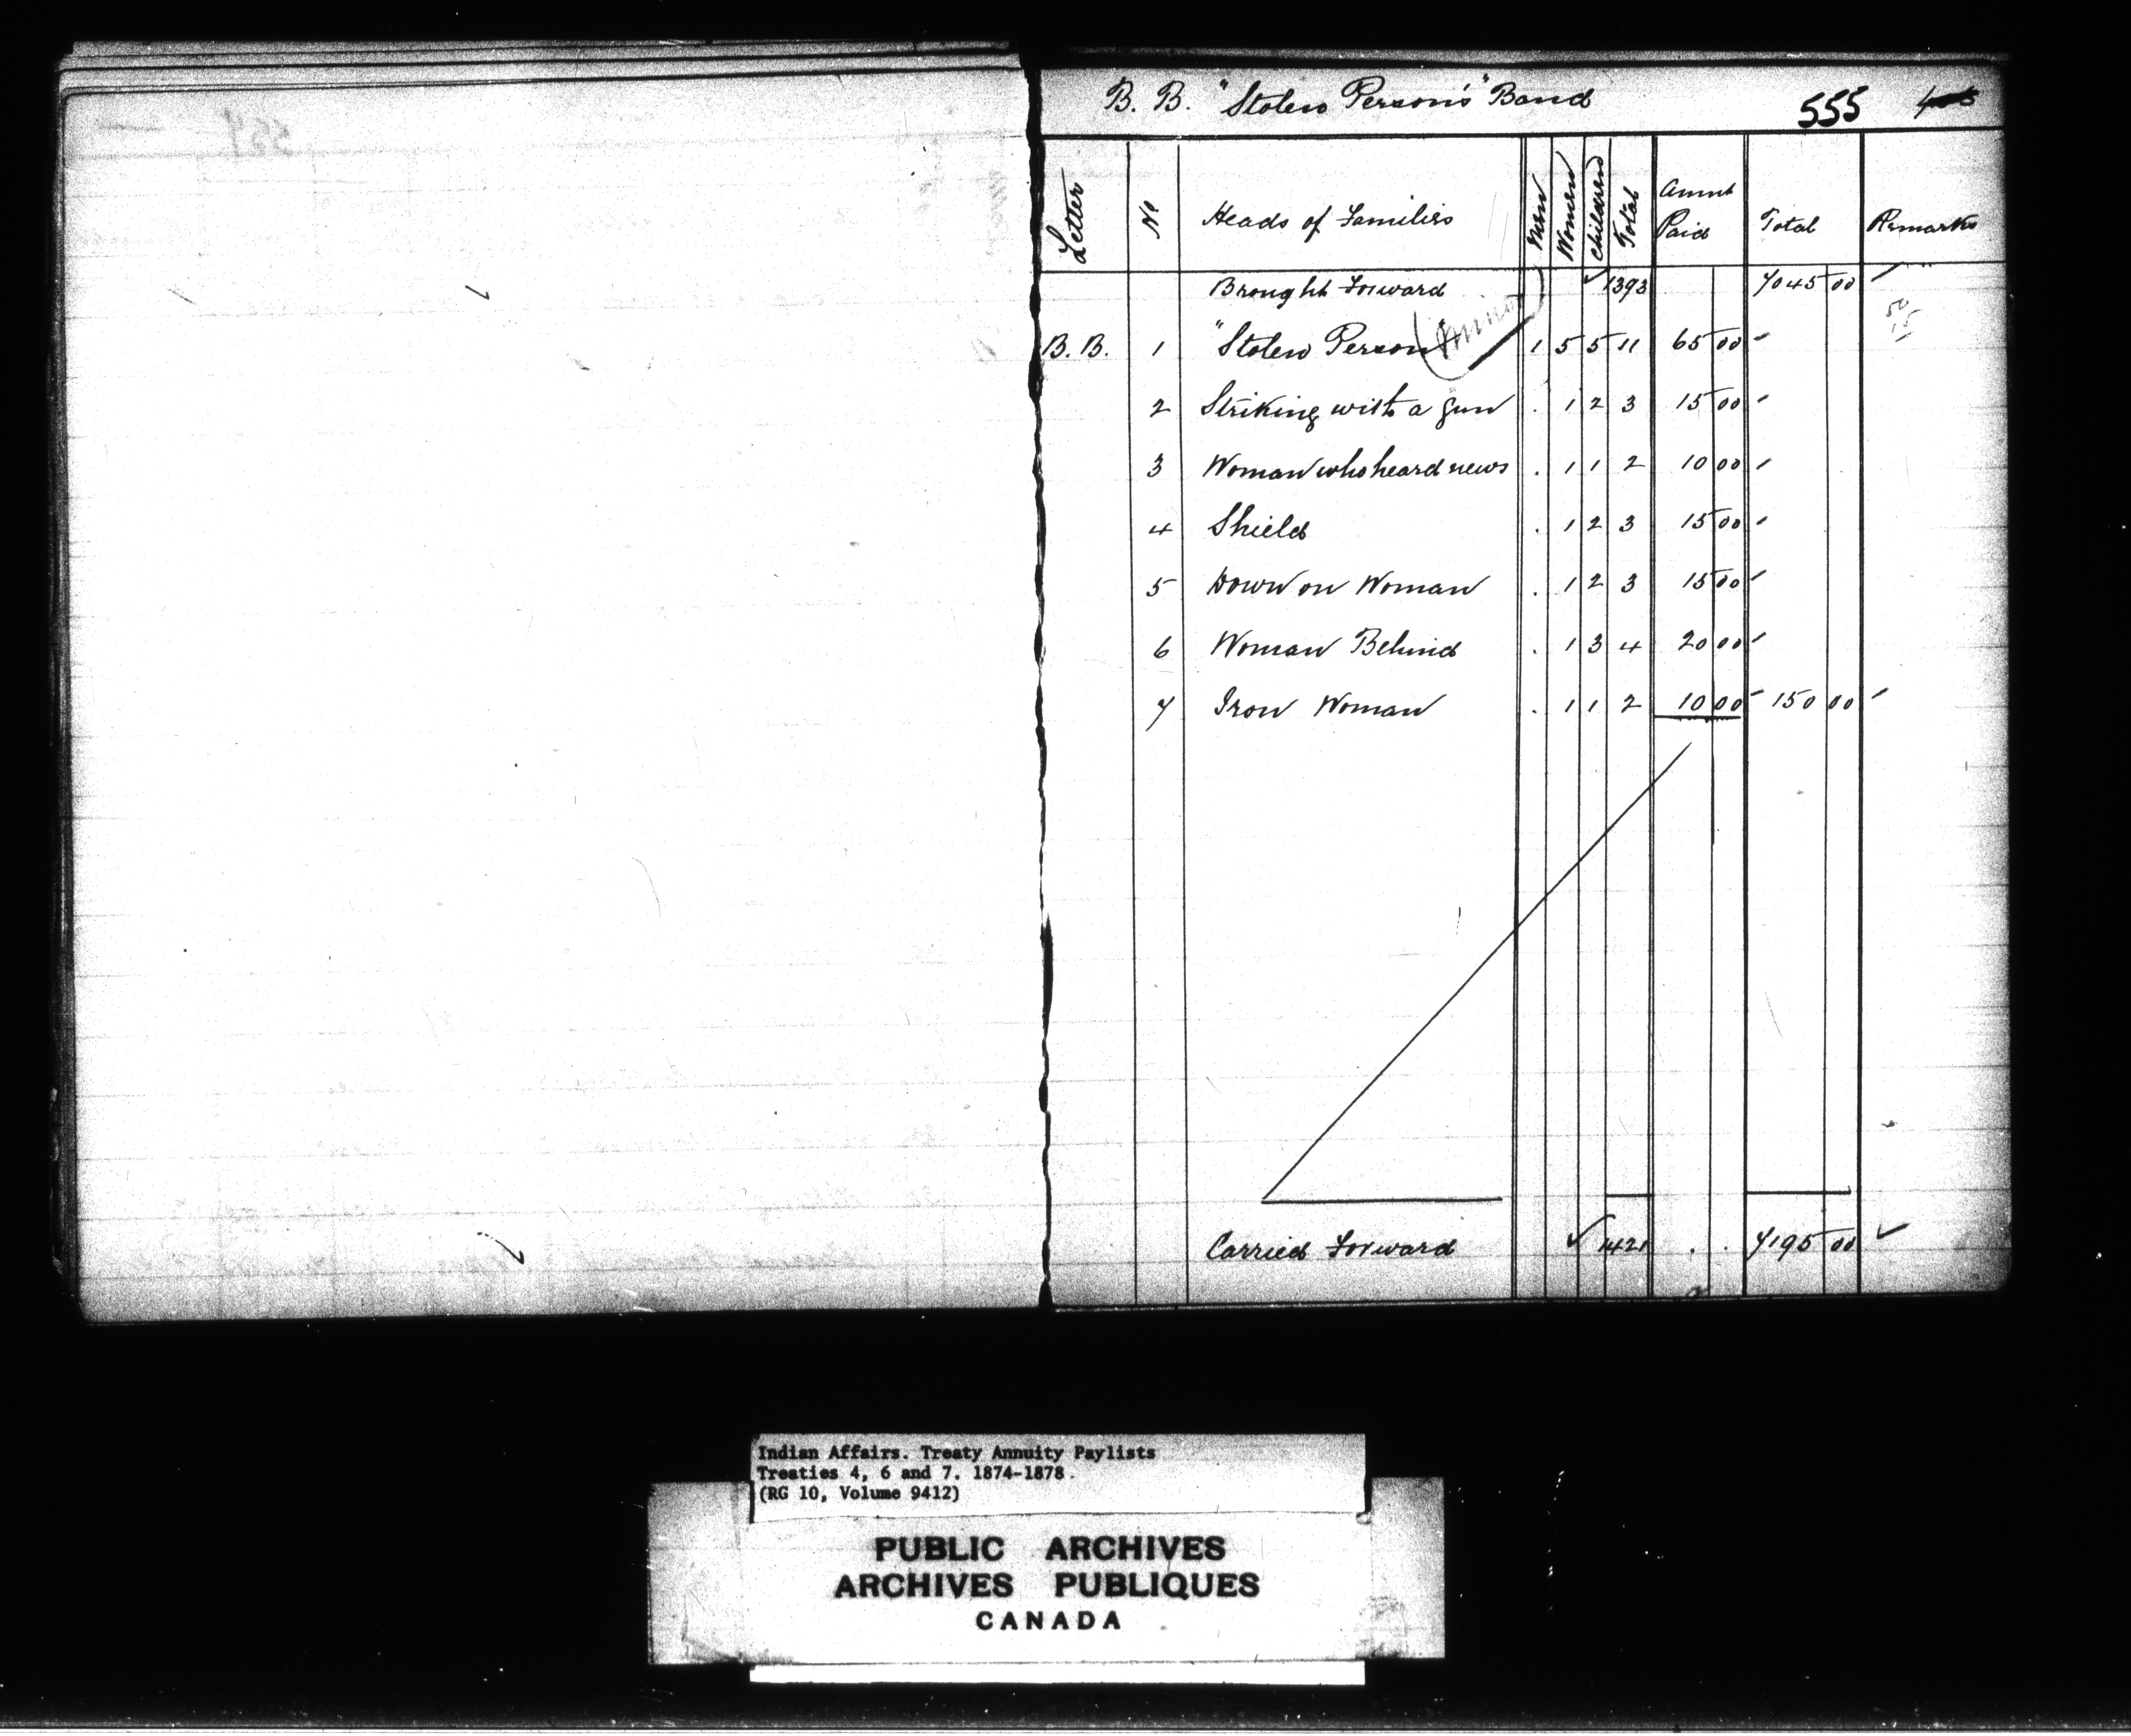 B. B. "Stolen Person's" Band 555
Letter No Heads of Families Men Women Children Total Amnt Paid Total Remarks
Brought Forward 1393 7045 00
B. B. 1 "Stolen Person" (Minor) 1 5 5 11 65 00
2 Striking with a gun . 1 2 3 15 00
3 Woman who heard news . 1 1 2 10 00
4 Shield . 1 2 3 15 00
5 Down on Woman . 1 2 3 15 00
6 Woman Behind . 1 3 4 20 00
7 Iron Woman . 1 1 2 10 00 150 00
Carried Forward 1421 . . 7195 00
Indian Affairs. Treaty Annuity Paylists
Treaties 4, 6 and 7. 1874-1878.
(RG 10, Volume 9412)
PUBLIC ARCHIVES
ARCHIVES PUBLIQUES
CANADA